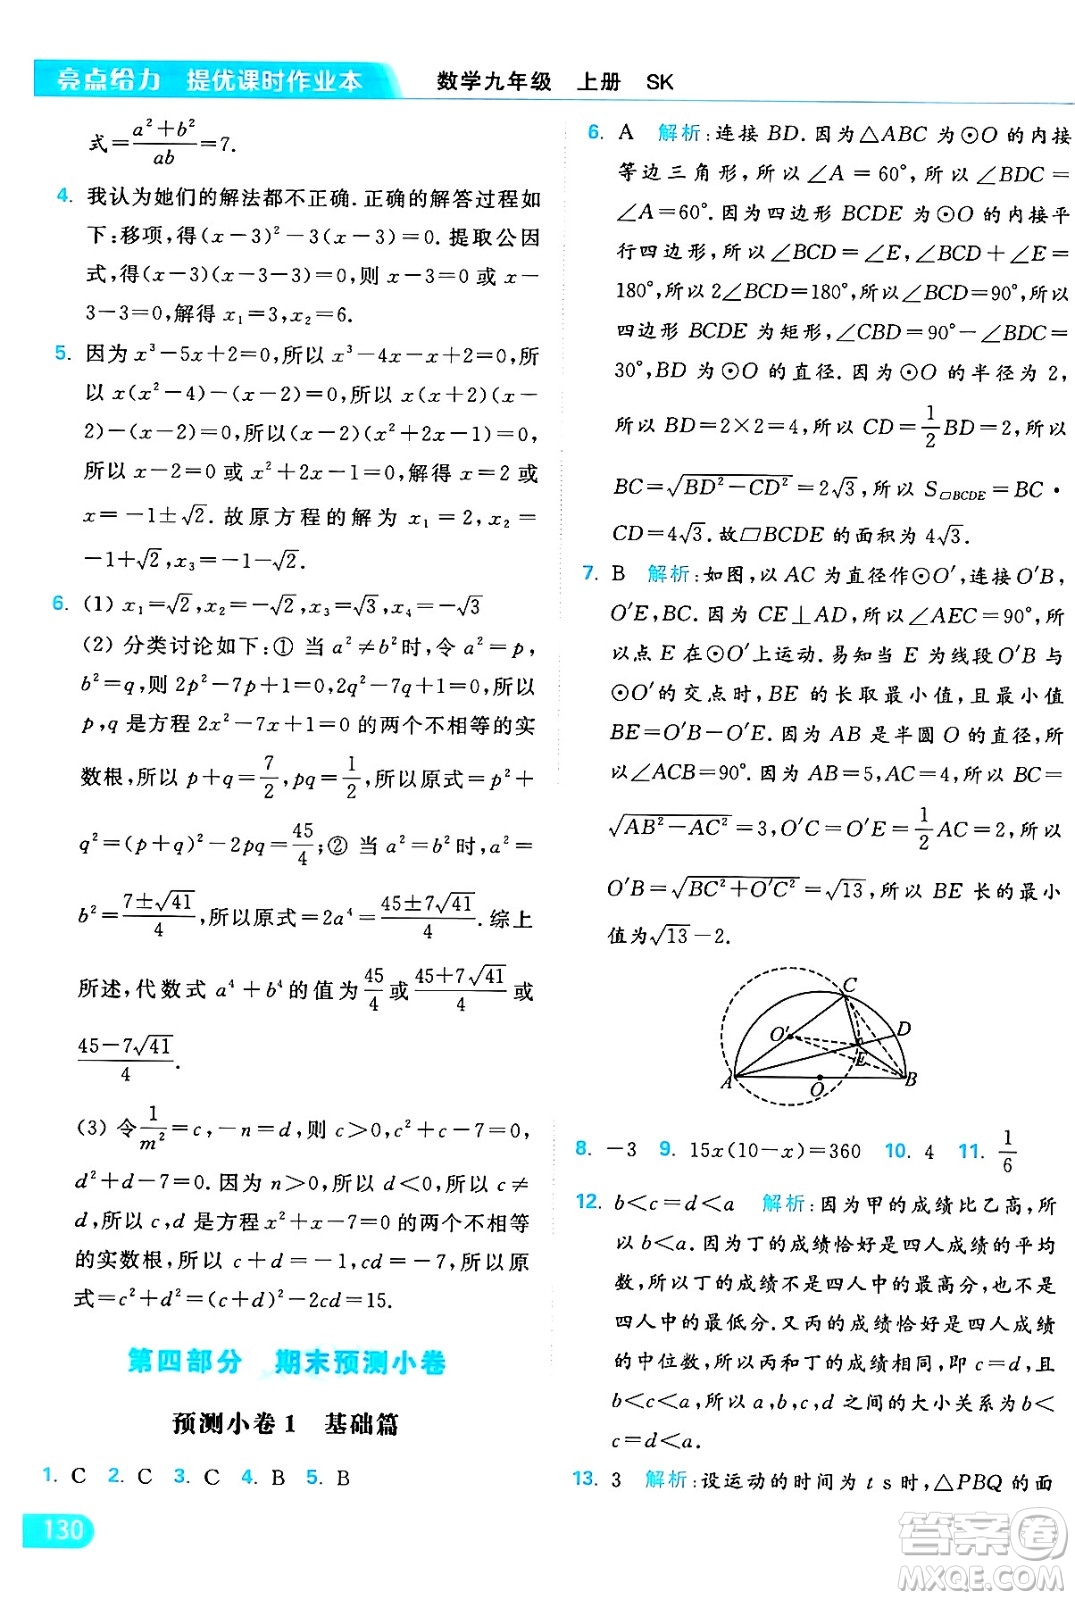 亮点给力 提优课时作业本 数学九年级 上册 SK
式=\frac{a²+b²}{ab}=7.
4. 我认为她们的解法都不正确.正确的解答过程如
下:移项,得(x-3)²-3(x-3)=0.提取公因
式,得(x-3)(x-3-3)=0,则 x-3=0 或 x-
3-3=0,解得 x₁=3,x₂=6.
5. 因为 x³-5x+2=0,所以 x³-4x-x+2=0,所
以 x(x²-4)-(x-2)=0,所以 x(x+2)(x-
2)-(x-2)=0,所以(x-2)(x²+2x-1)=0,
所以 x-2=0 或 x²+2x-1=0,解得 x=2 或
x=-1±√2.故原方程的解为 x₁=2,x₂=
-1+√2,x₃=-1-√2.
6. (1) x₁=√2,x₂=-√2,x₃=√3,x₄=-√3
(2) 分类讨论如下:① 当 a²≠b²时,令 a²=p,
b²=q,则 2p²-7p+1=0,2q²-7q+1=0,所以
p,q 是方程 2x²-7x+1=0 的两个不相等的实
数根,所以 p+q=\frac{7}{2},pq=\frac{1}{2},所以原式=p²+
q²=(p+q)²-2pq=\frac{45}{4};② 当 a²=b²时,a²=
b²=\frac{7±√41}{4},所以原式=2a⁴=\frac{45±7√41}{4}.综上
所述,代数式 a⁴+b⁴的值为\frac{45}{4}或\frac{45+7√41}{4}或
\frac{45-7√41}{4}.
(3) 令\frac{1}{m²}=c,-n=d,则 c>0,c²+c-7=0,
d²+d-7=0.因为 n>0,所以 d<0,所以 c≠
d,所以 c,d 是方程 x²+x-7=0 的两个不相等
的实数根,所以 c+d=-1,cd=-7,所以原
式=c²+d²=(c+d)²-2cd=15.
第四部分 期末预测小卷
预测小卷1 基础篇
1. C 2. C 3. C 4. B 5. B
130
6. A 解析:连接 BD.因为△ABC 为⊙O 的内接
等边三角形,所以∠A=60°,所以∠BDC=
∠A=60°.因为四边形 BCDE 为⊙O 的内接平
行四边形,所以∠BCD=∠E,∠BCD+∠E=
180°,所以 2∠BCD=180°,所以∠BCD=90°,所以
四边形 BCDE 为矩形,∠CBD=90°-60°=
30°,BD 为⊙O 的直径.因为⊙O 的半径为 2,
所以 BD=2×2=4,所以 CD=\frac{1}{2}BD=2,所以
BC=√(BD²-CD²)=2√3,所以 S▱BCDE=BC·
CD=4√3.故▱BCDE 的面积为 4√3.
7. B 解析:如图,以 AC 为直径作⊙O′,连接 O′B,
O′E,BC.因为 CE⊥AD,所以∠AEC=90°,所
以点 E 在⊙O′上运动.易知当 E 为线段 O′B 与
⊙O′的交点时,BE 的长取最小值,且最小值
BE=O′B-O′E.因为 AB 是半圆 O 的直径,所
以∠ACB=90°.因为 AB=5,AC=4,所以 BC=
√(AB²-AC²)=3,O′C=O′E=\frac{1}{2}AC=2,所以
O′B=√(BC²+O′C²)=√13,所以 BE 长的最小
值为√13-2.
C
O′
D
E
A
O
B
8. -3 9. 15x(10-x)=360 10. 4 11. \frac{1}{6}
12. b<c=d<a 解析:因为甲的成绩比乙高,所
以 b<a.因为丁的成绩恰好是四人成绩的平均
数,所以丁的成绩不是四人中的最高分,也不是
四人中的最低分.又丙的成绩恰好是四人成绩
的中位数,所以丙和丁的成绩相同,即 c=d,且
b<d<a,所以 a,b,c,d 之间的大小关系是 b<
c=d<a.
13. 3 解析:设运动的时间为 t s时,△PBQ 的面
答案圈
MXQE.COM